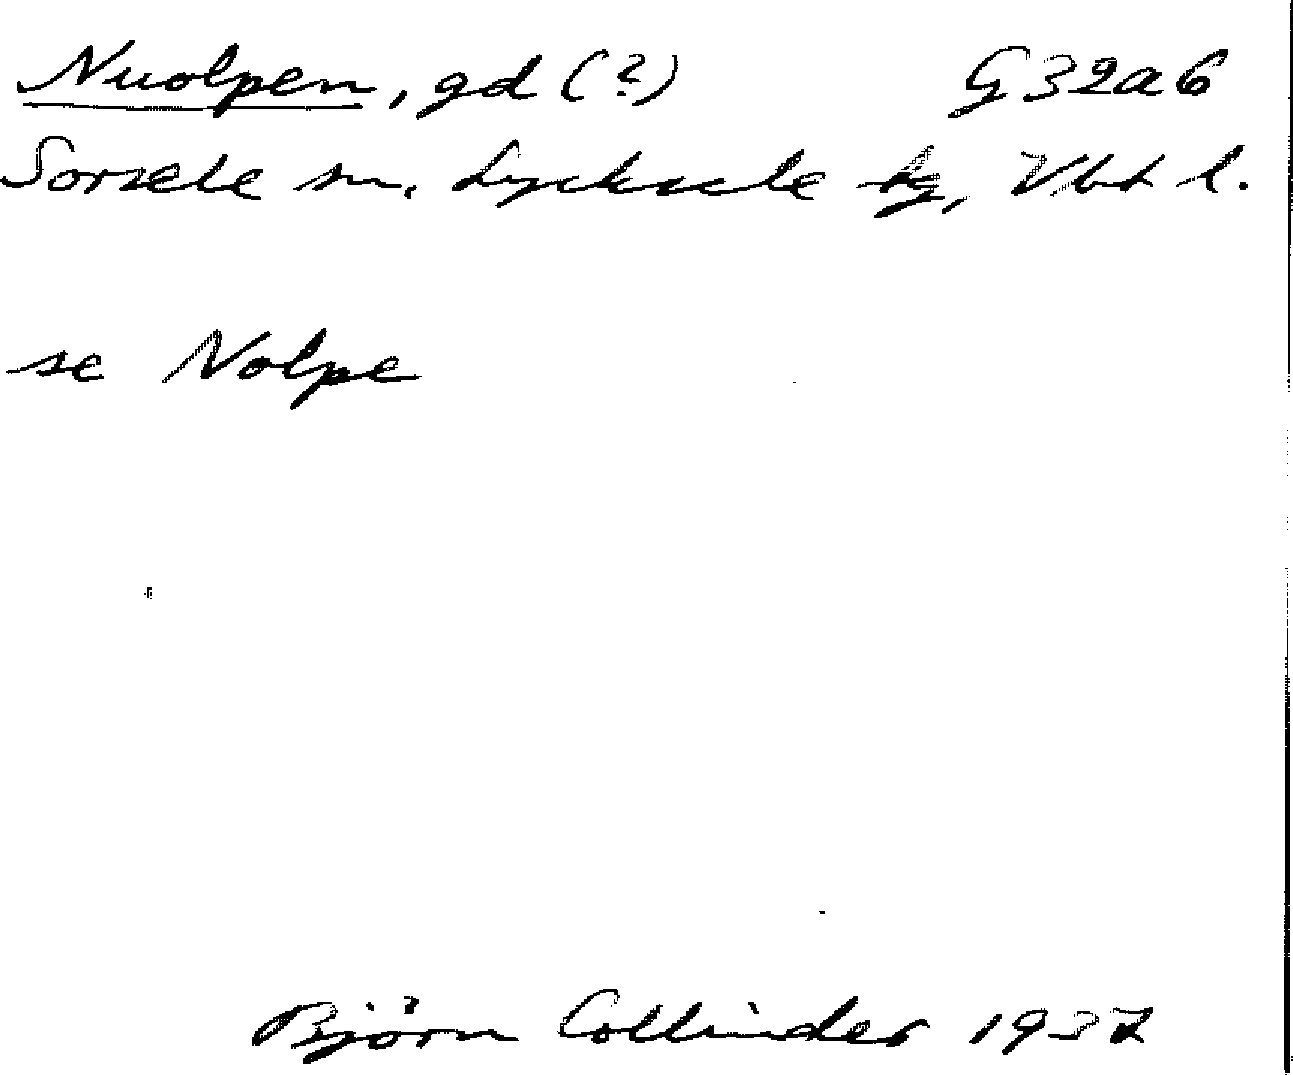 Nuolpen, gd (?) G32a6
Sorsele sn. Lycksele tg, Vbt l.
se Nolpe
Björn Collinder 1937